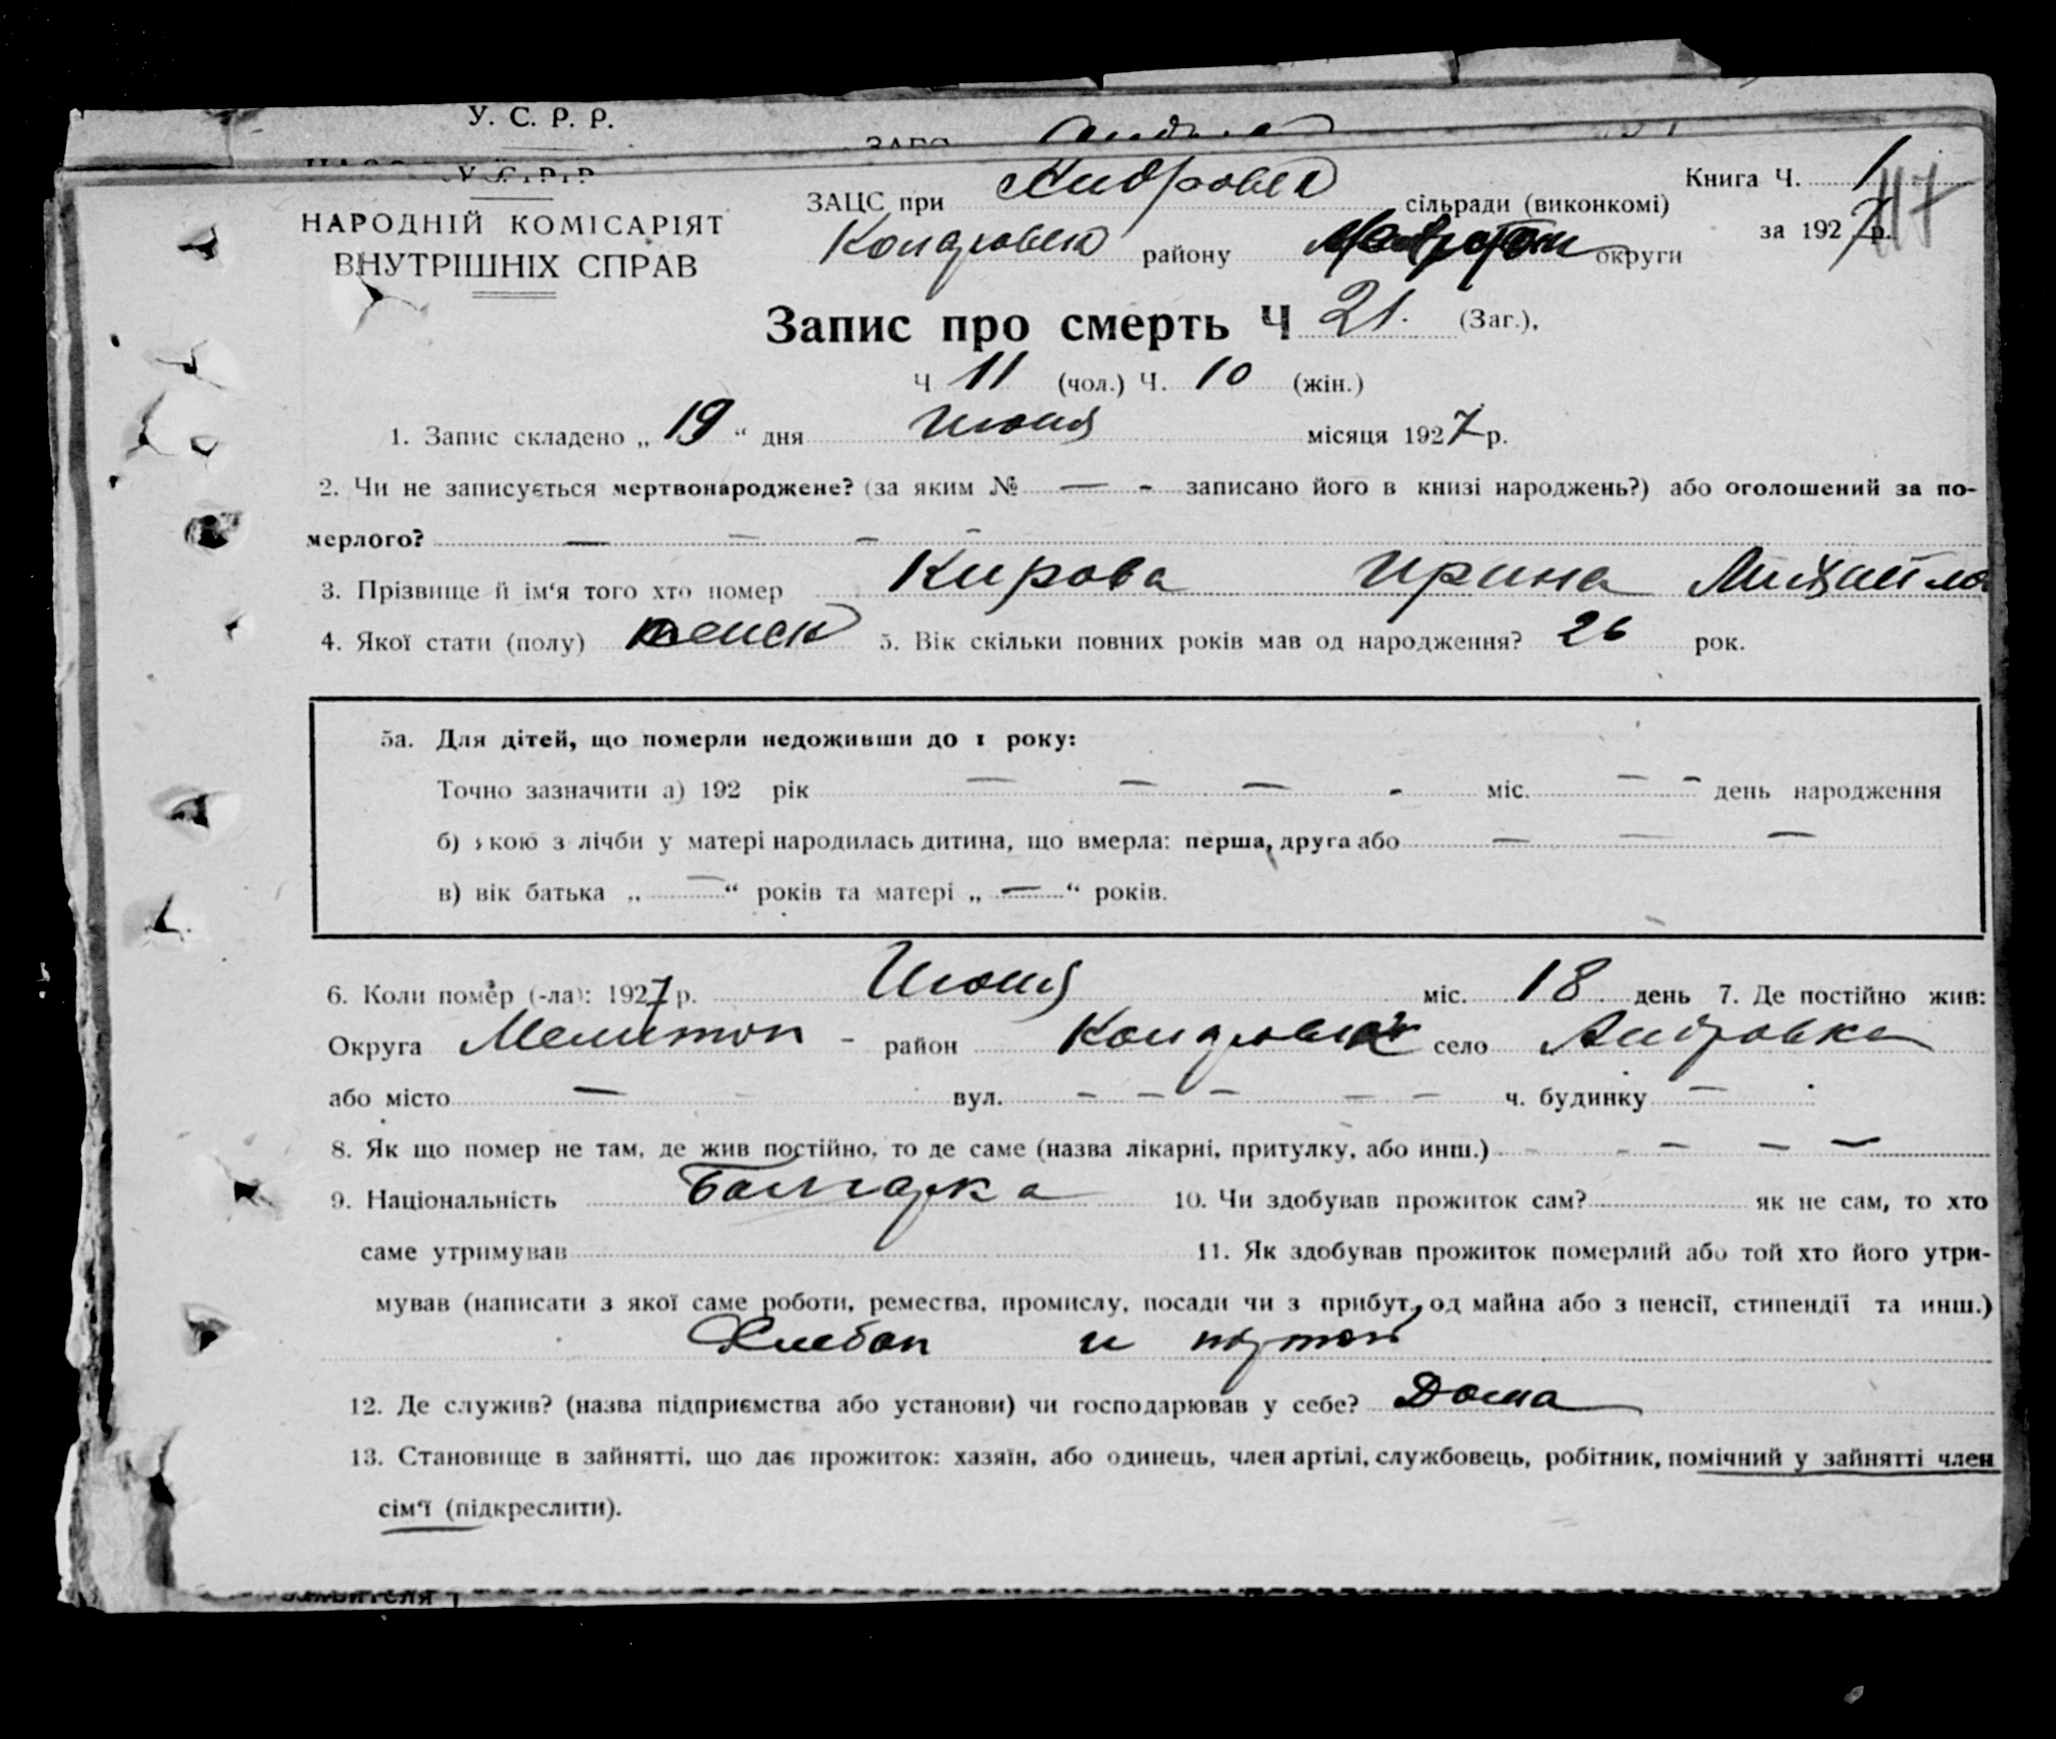 У. С. Р. Р.
У. С. Р. Р.
НАРОДНІЙ КОМІСАРІЯТ
ВНУТРІШНІХ СПРАВ
Книга Ч. 1
117
ЗАЦС при Андровск сільради (виконкомі)
за 1927 р.
району округи
Запис про смерть Ч 21. (Заг.),
Ч 11 (чол.) Ч. 10 (жін.)
1. Запис складено „ 19 “ дня Июня місяця 1927 р.
2. Чи не записується мертвонароджене? (за яким № — - записано його в книзі народжень?) або оголошений за по-
мерлого? — — —
3. Прізвище й ім‘я того хто помер Кирова Ирина Михайло
4. Якої стати (полу) женск 5. Вік скільки повних років мав од народження? 26 рок.
5а. Для дітей, що померли недоживши до 1 року:
Точно зазначити а) 192 рік — — — - міс. — - день народження
б) якою з лічби у матері народилась дитина, що вмерла: перша, друга або — — —
в) вік батька „ — “ років та матері „ — “ років.
6. Коли помер (-ла): 1927 р. Июня міс. 18 день 7. Де постійно жив:
Округа Мелитоп - район село Андровка
або місто — вул. - - - - - ч. будинку —
8. Як що помер не там, де жив постійно, то де саме (назва лікарні, притулку, або инш.) - - — — —
9. Національність Болгарка 10. Чи здобував прожиток сам? як не сам, то хто
саме утримував 11. Як здобував прожиток померлий або той хто його утри-
мував (написати з якої саме роботи, ремества, промислу, посади чи з прибут, од майна або з пенсії, стипендії та инш.)
Хлебоп и
12. Де служив? (назва підприємства або установи) чи господарював у себе? Дома
13. Становище в зайнятті, що дає прожиток: хазяїн, або одинець, член артілі, службовець, робітник, помічний у зайнятті член
сім‘ї (підкреслити).